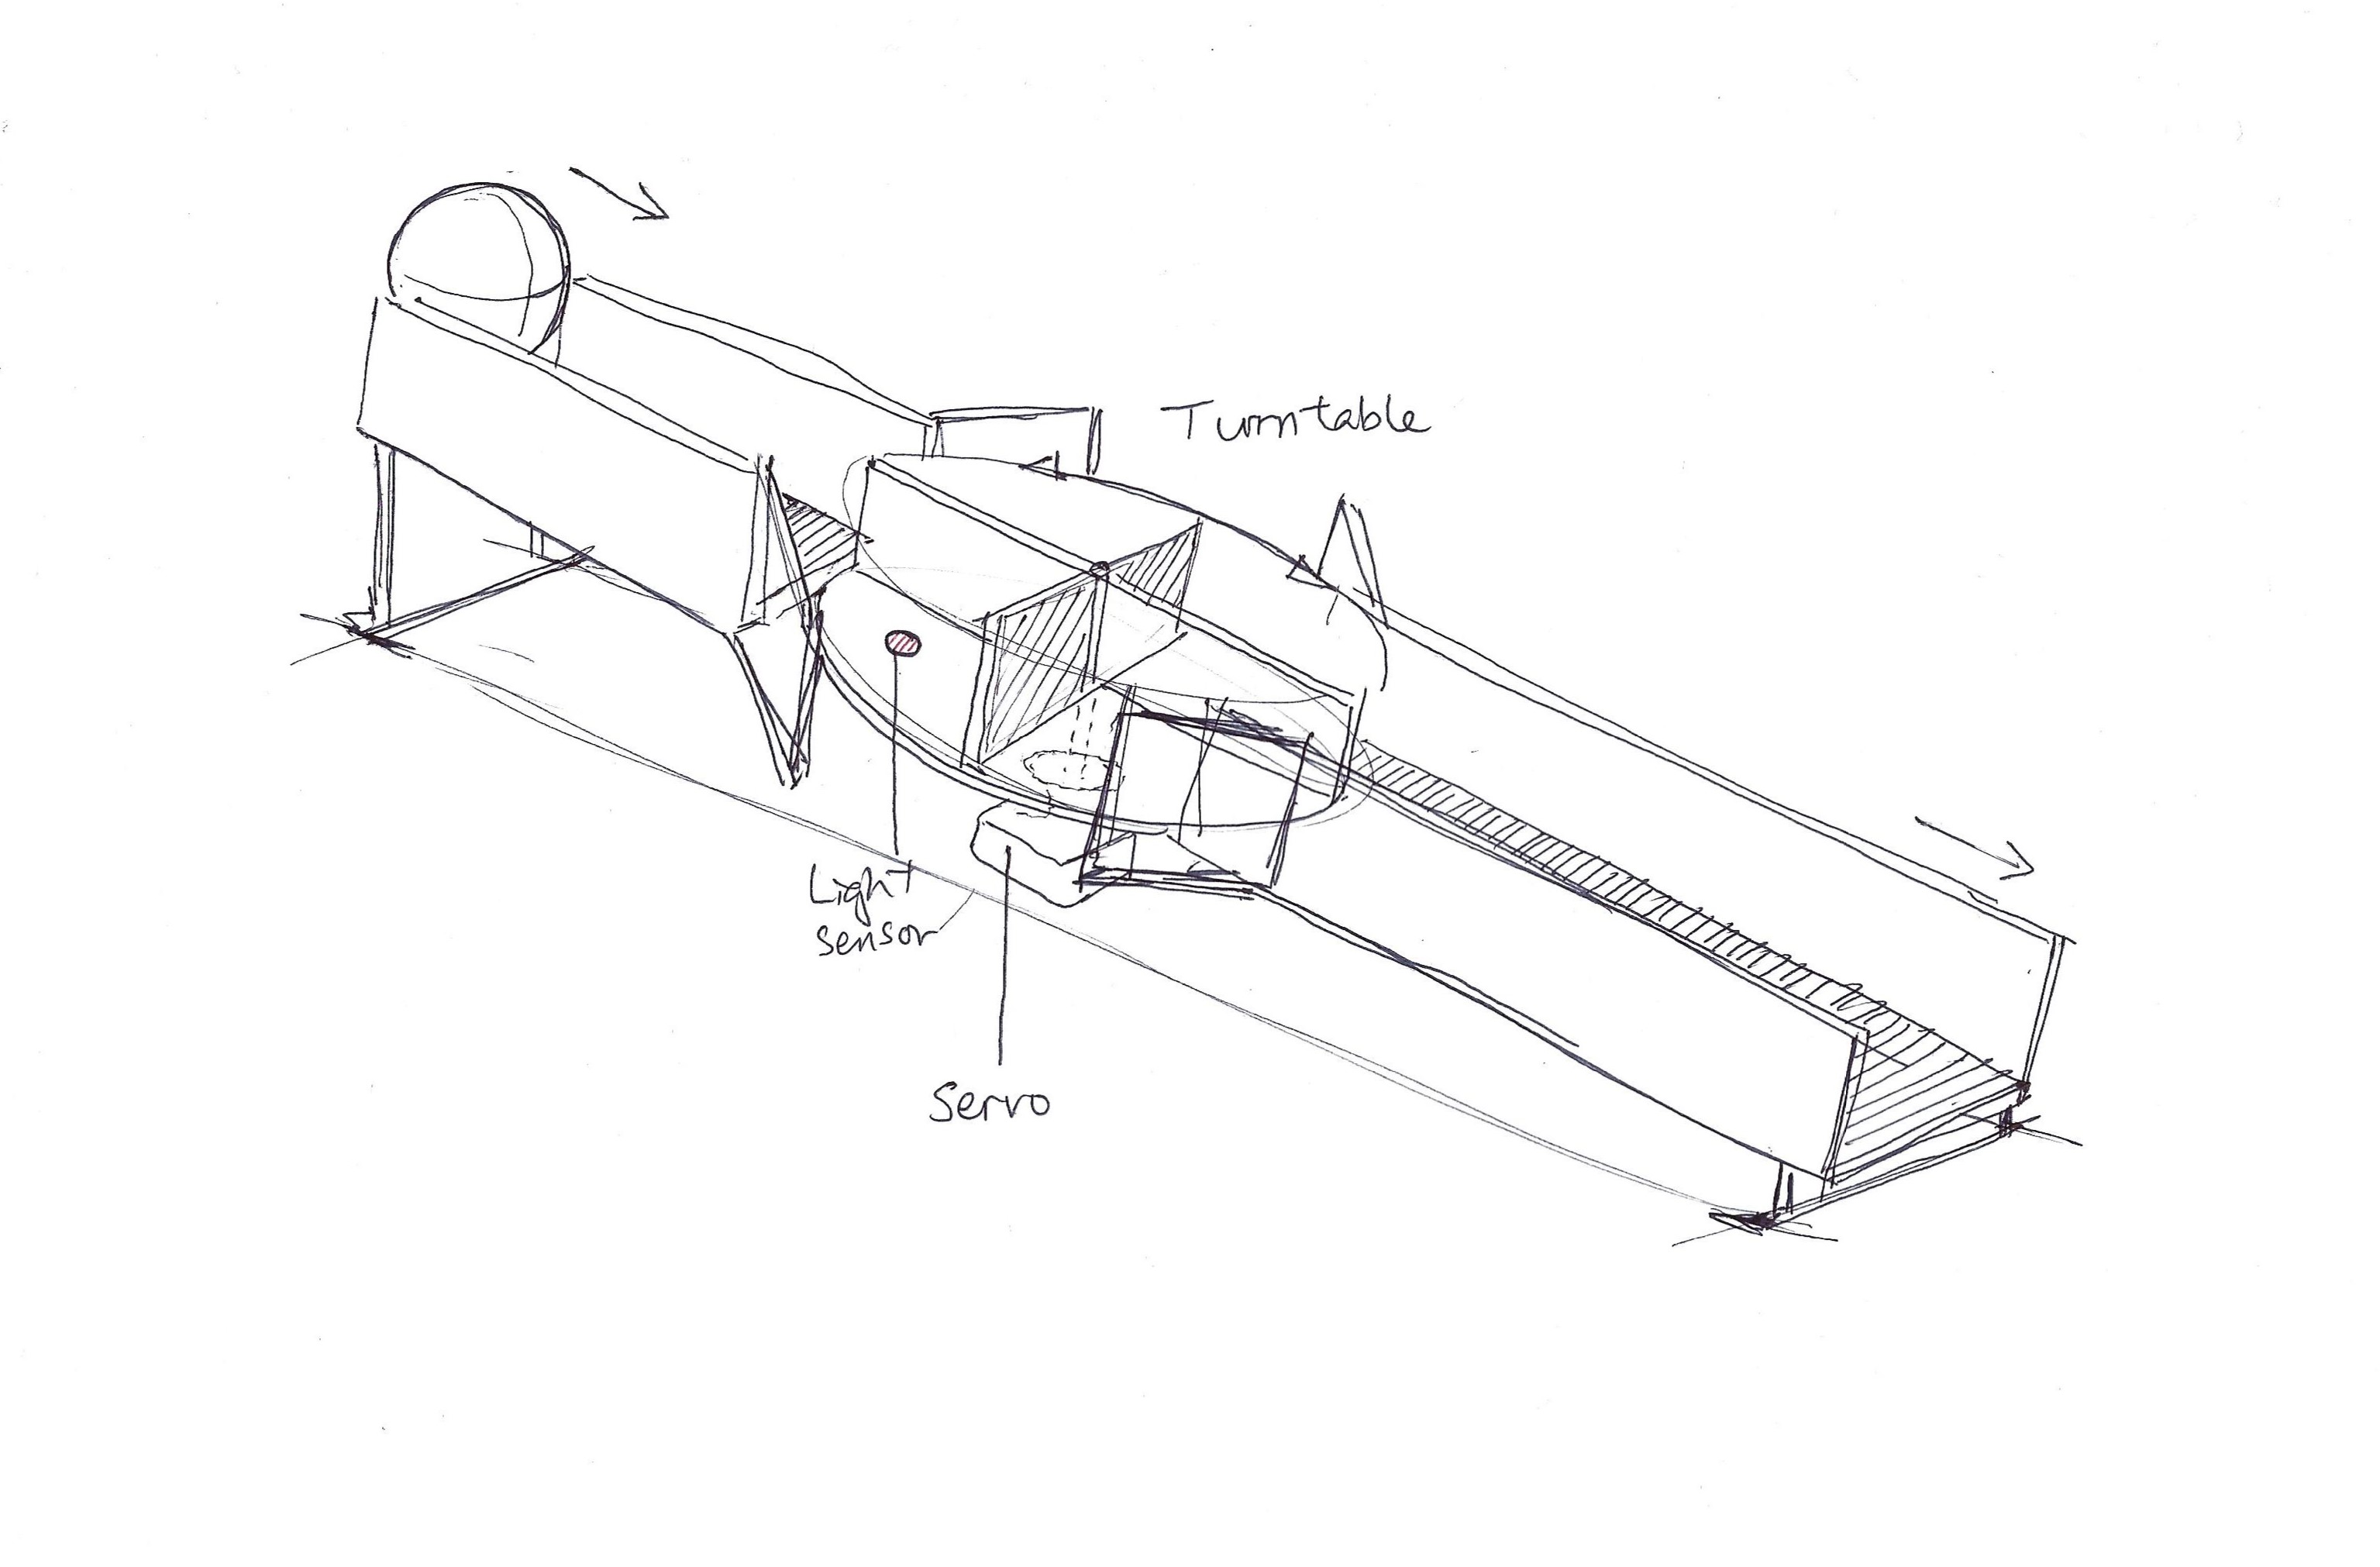 Turntable
Light
sensor
Servo